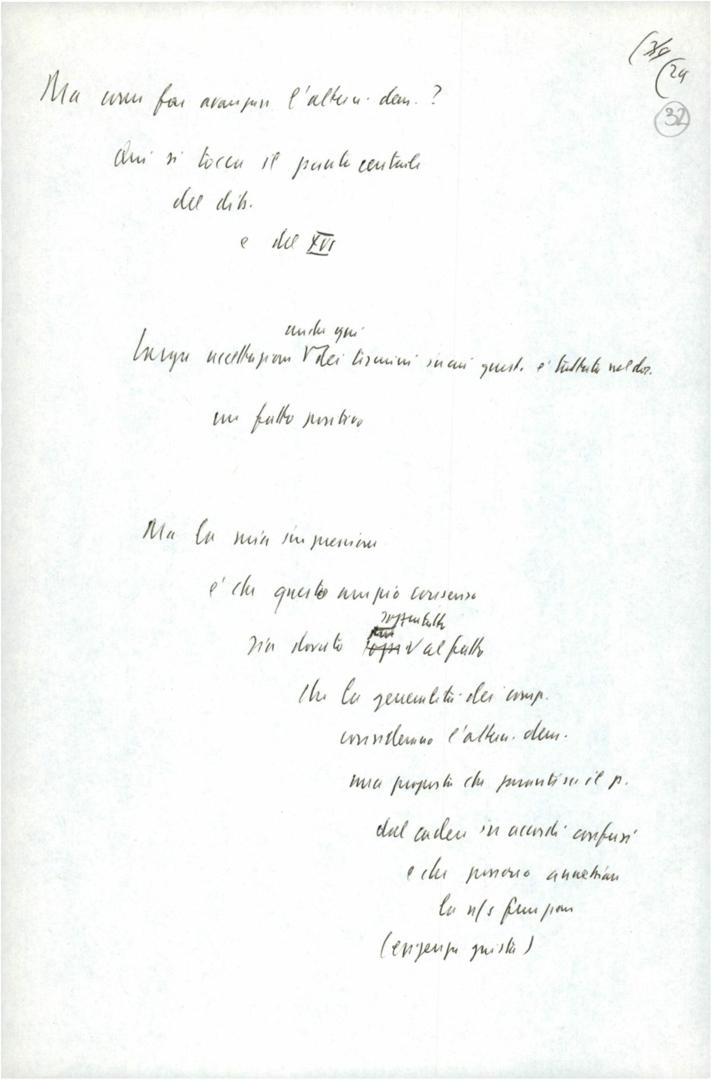 24
32
Ma come far avanzare l'altern. dem.?
Qui si tocca il punto centrale
del dib.
e del XVI
anche qui
Larga accettazione V dei termini in cui quest. è trattata nel doc.
un fatto positivo
Ma la mia impressione
è che questo ampio consenso
soprattutto
sia dovuto V al fatto
che la generalità dei comp.
considerano l'altern. dem.
una proposta che garantisce il p.
dal cadere in accordi confusi
e che possono annebbiare
la n/s funzione
(esigenza giusta)